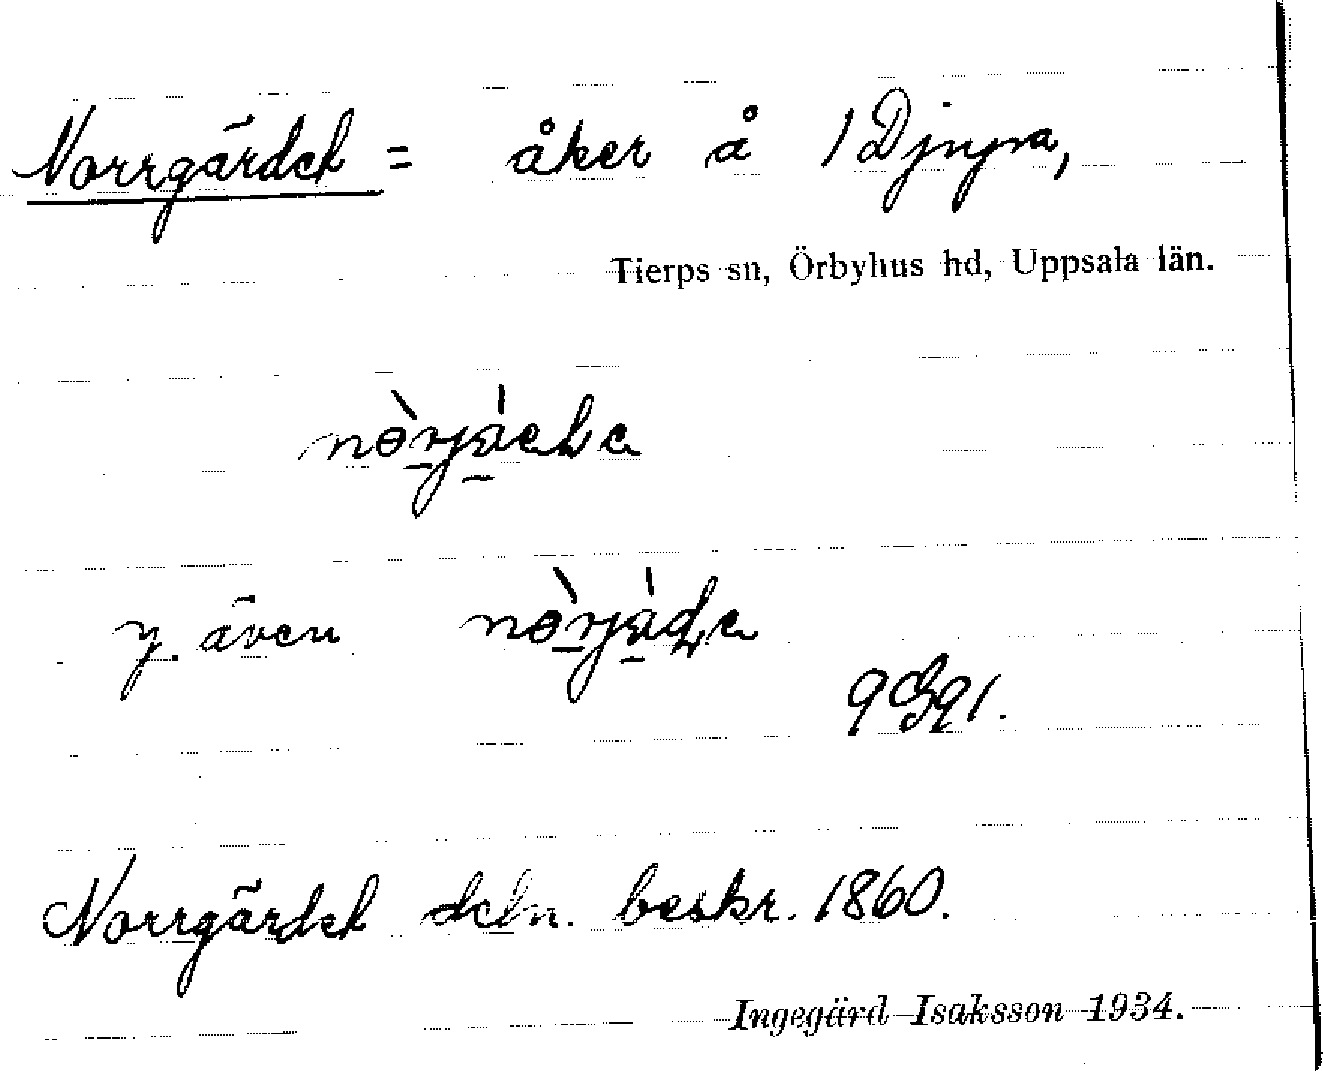 Norrgärdet = åker å 1 Djupa,
Tierps sn, Örbyhus hd, Uppsala län.
y. även
Norrgärdet deln. beskr. 1860.
Ingegärd Isaksson 1934.